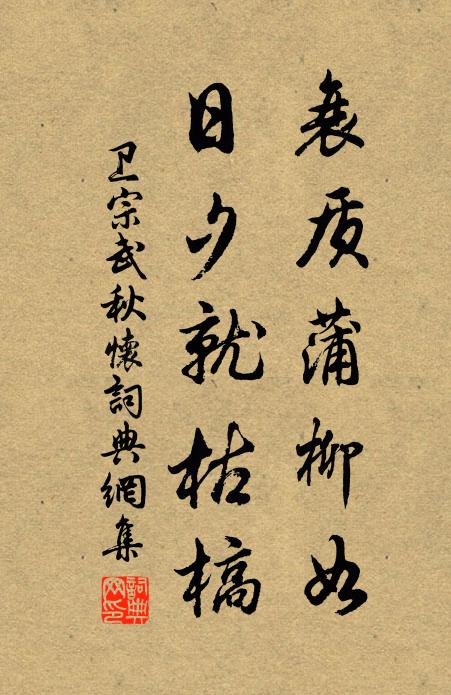 衰质蒲柳如
日夕就枯槁
卫宗武秋懷詞典網集
詞典网印